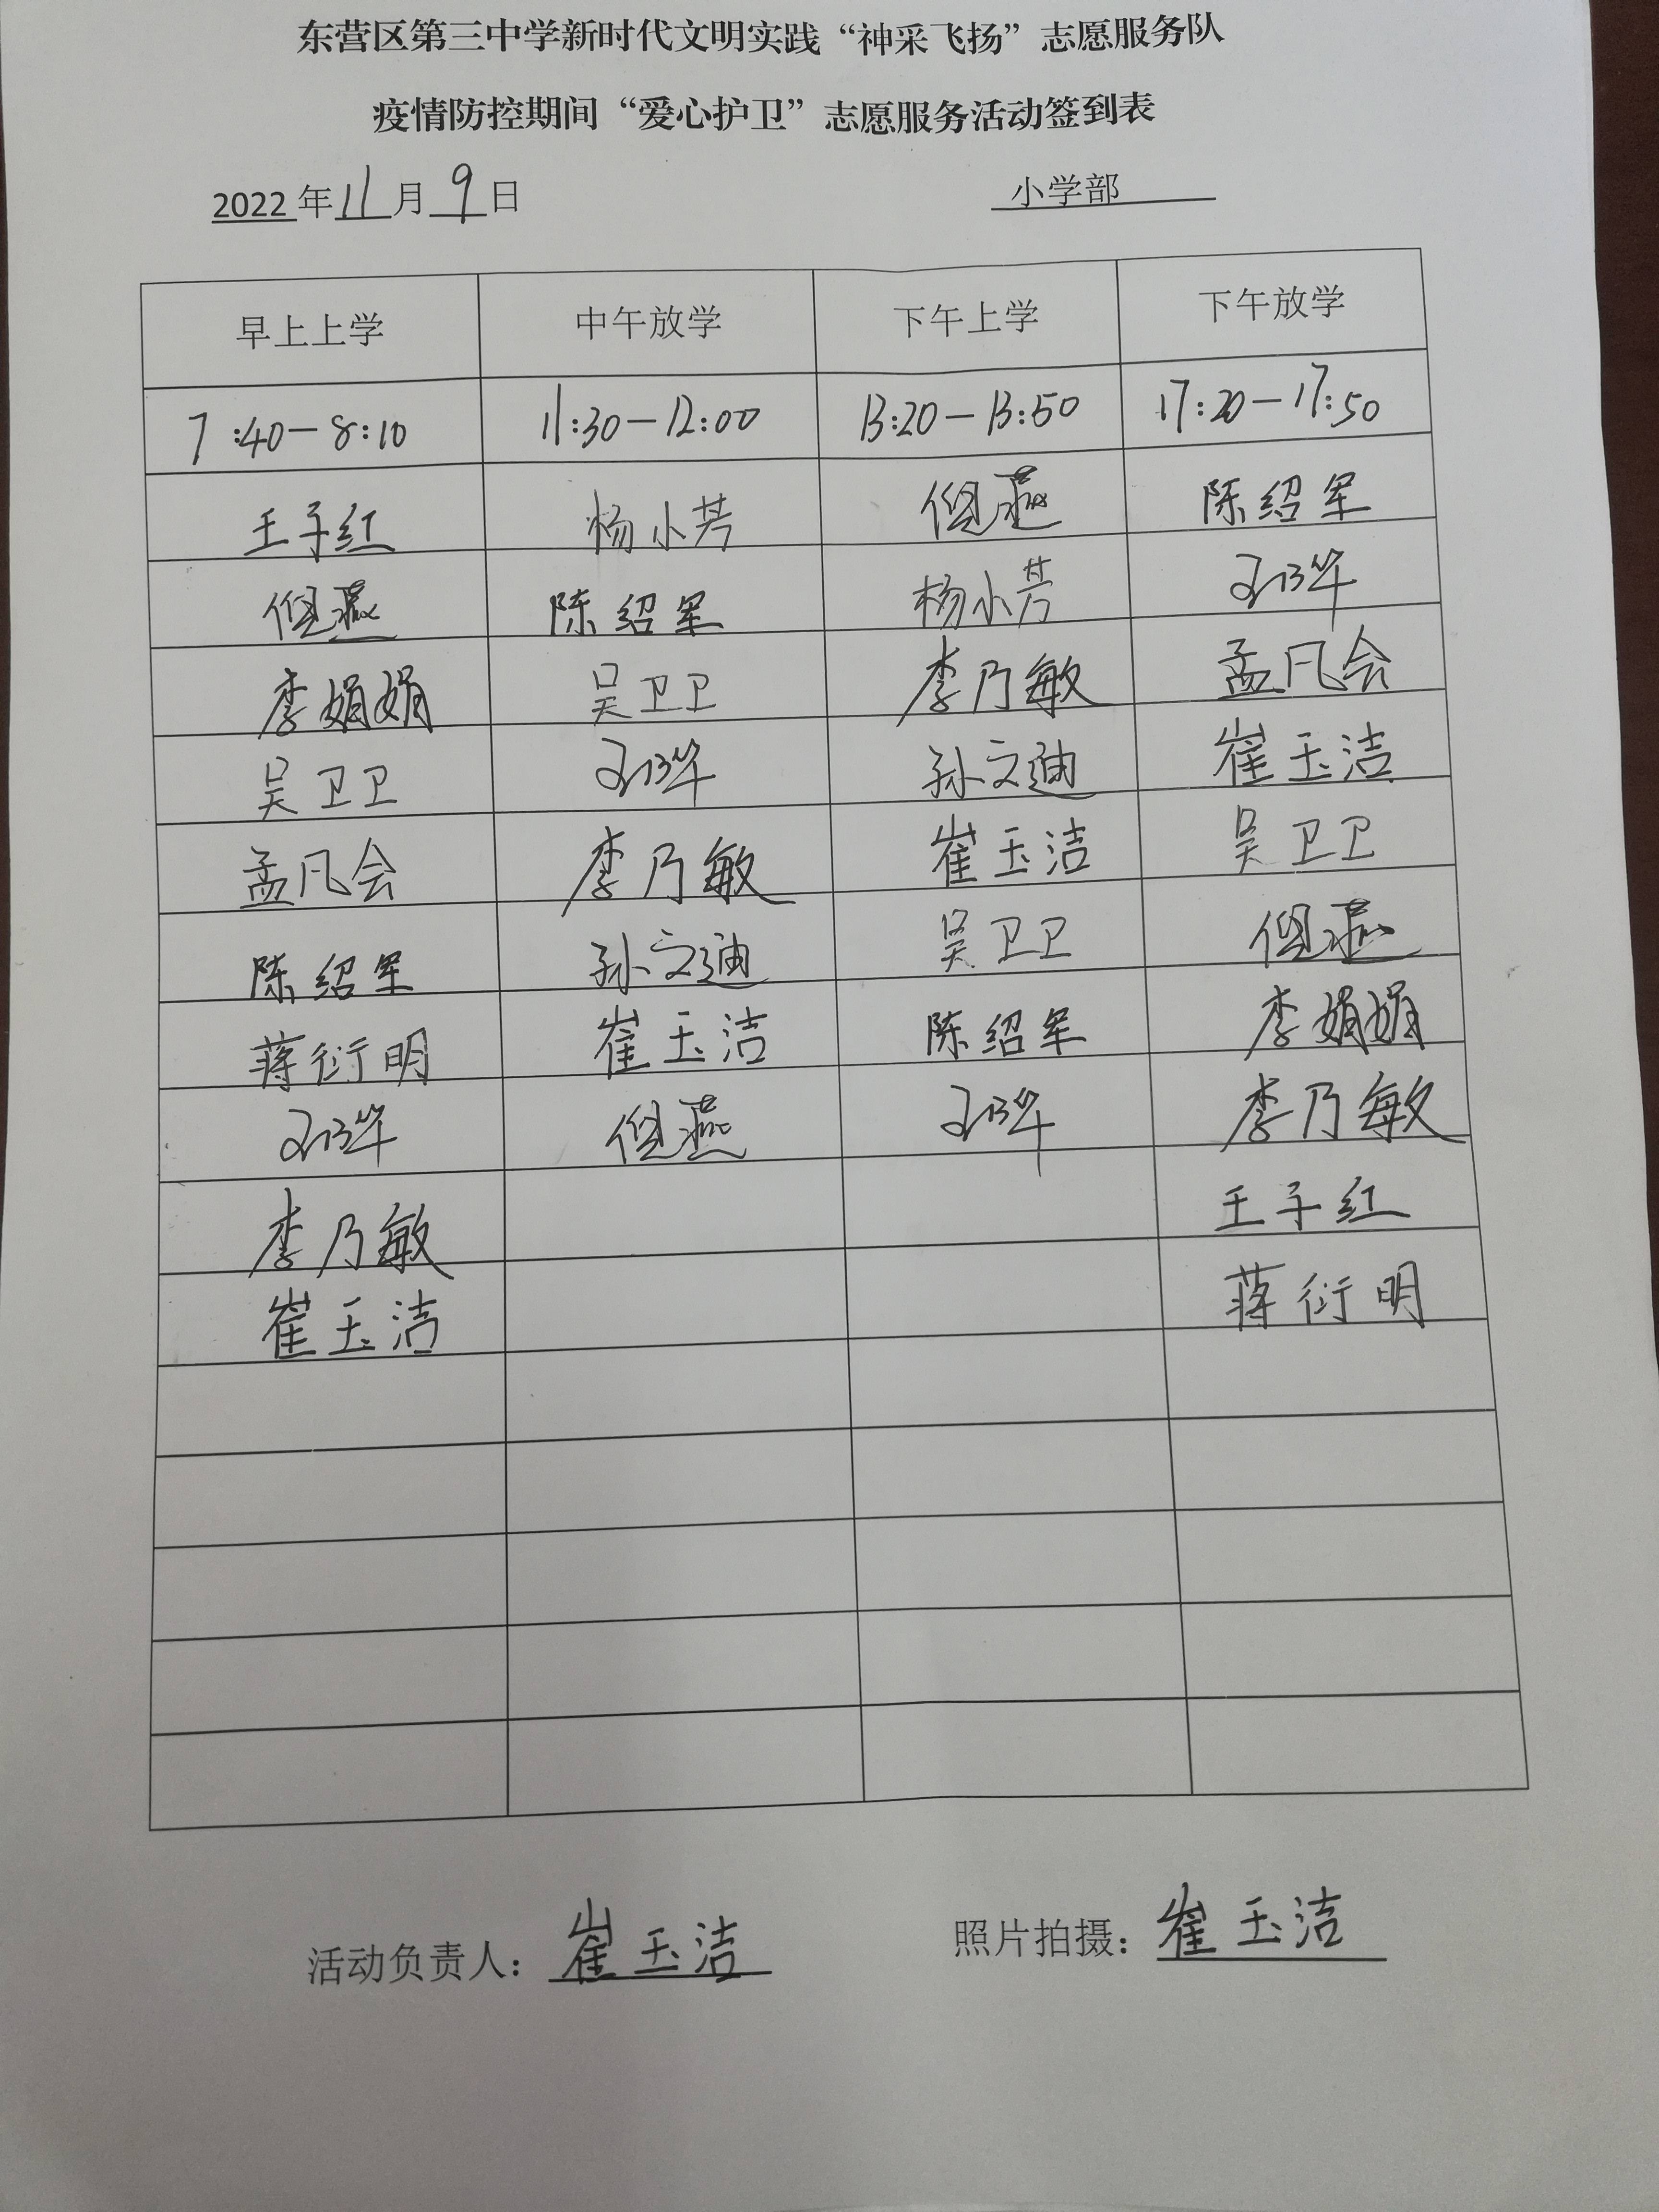 东营区第三中学新时代文明实践“神采飞扬”志愿服务队
疫情防控期间“爱心护卫”志愿服务活动签到表
2022年11月9日 小学部
早上上学 中午放学 下午上学 下午放学
7:40-8:10 11:30-12:00 13:20-13:50 17:20-17:50
王子红 杨小芳 但燕 陈绍军
但燕 陈绍军 杨小芳
李娟娟 吴卫卫 李乃敏 孟凡会
吴卫卫 孙文迪 崔玉洁
孟凡会 李乃敏 崔玉洁 吴卫卫
陈绍军 孙文迪 吴卫卫 但燕
蒋衍明 崔玉洁 陈绍军 李娟娟
但燕 李乃敏
李乃敏 王子红
崔玉洁 蒋衍明
活动负责人：崔玉洁 照片拍摄：崔玉洁